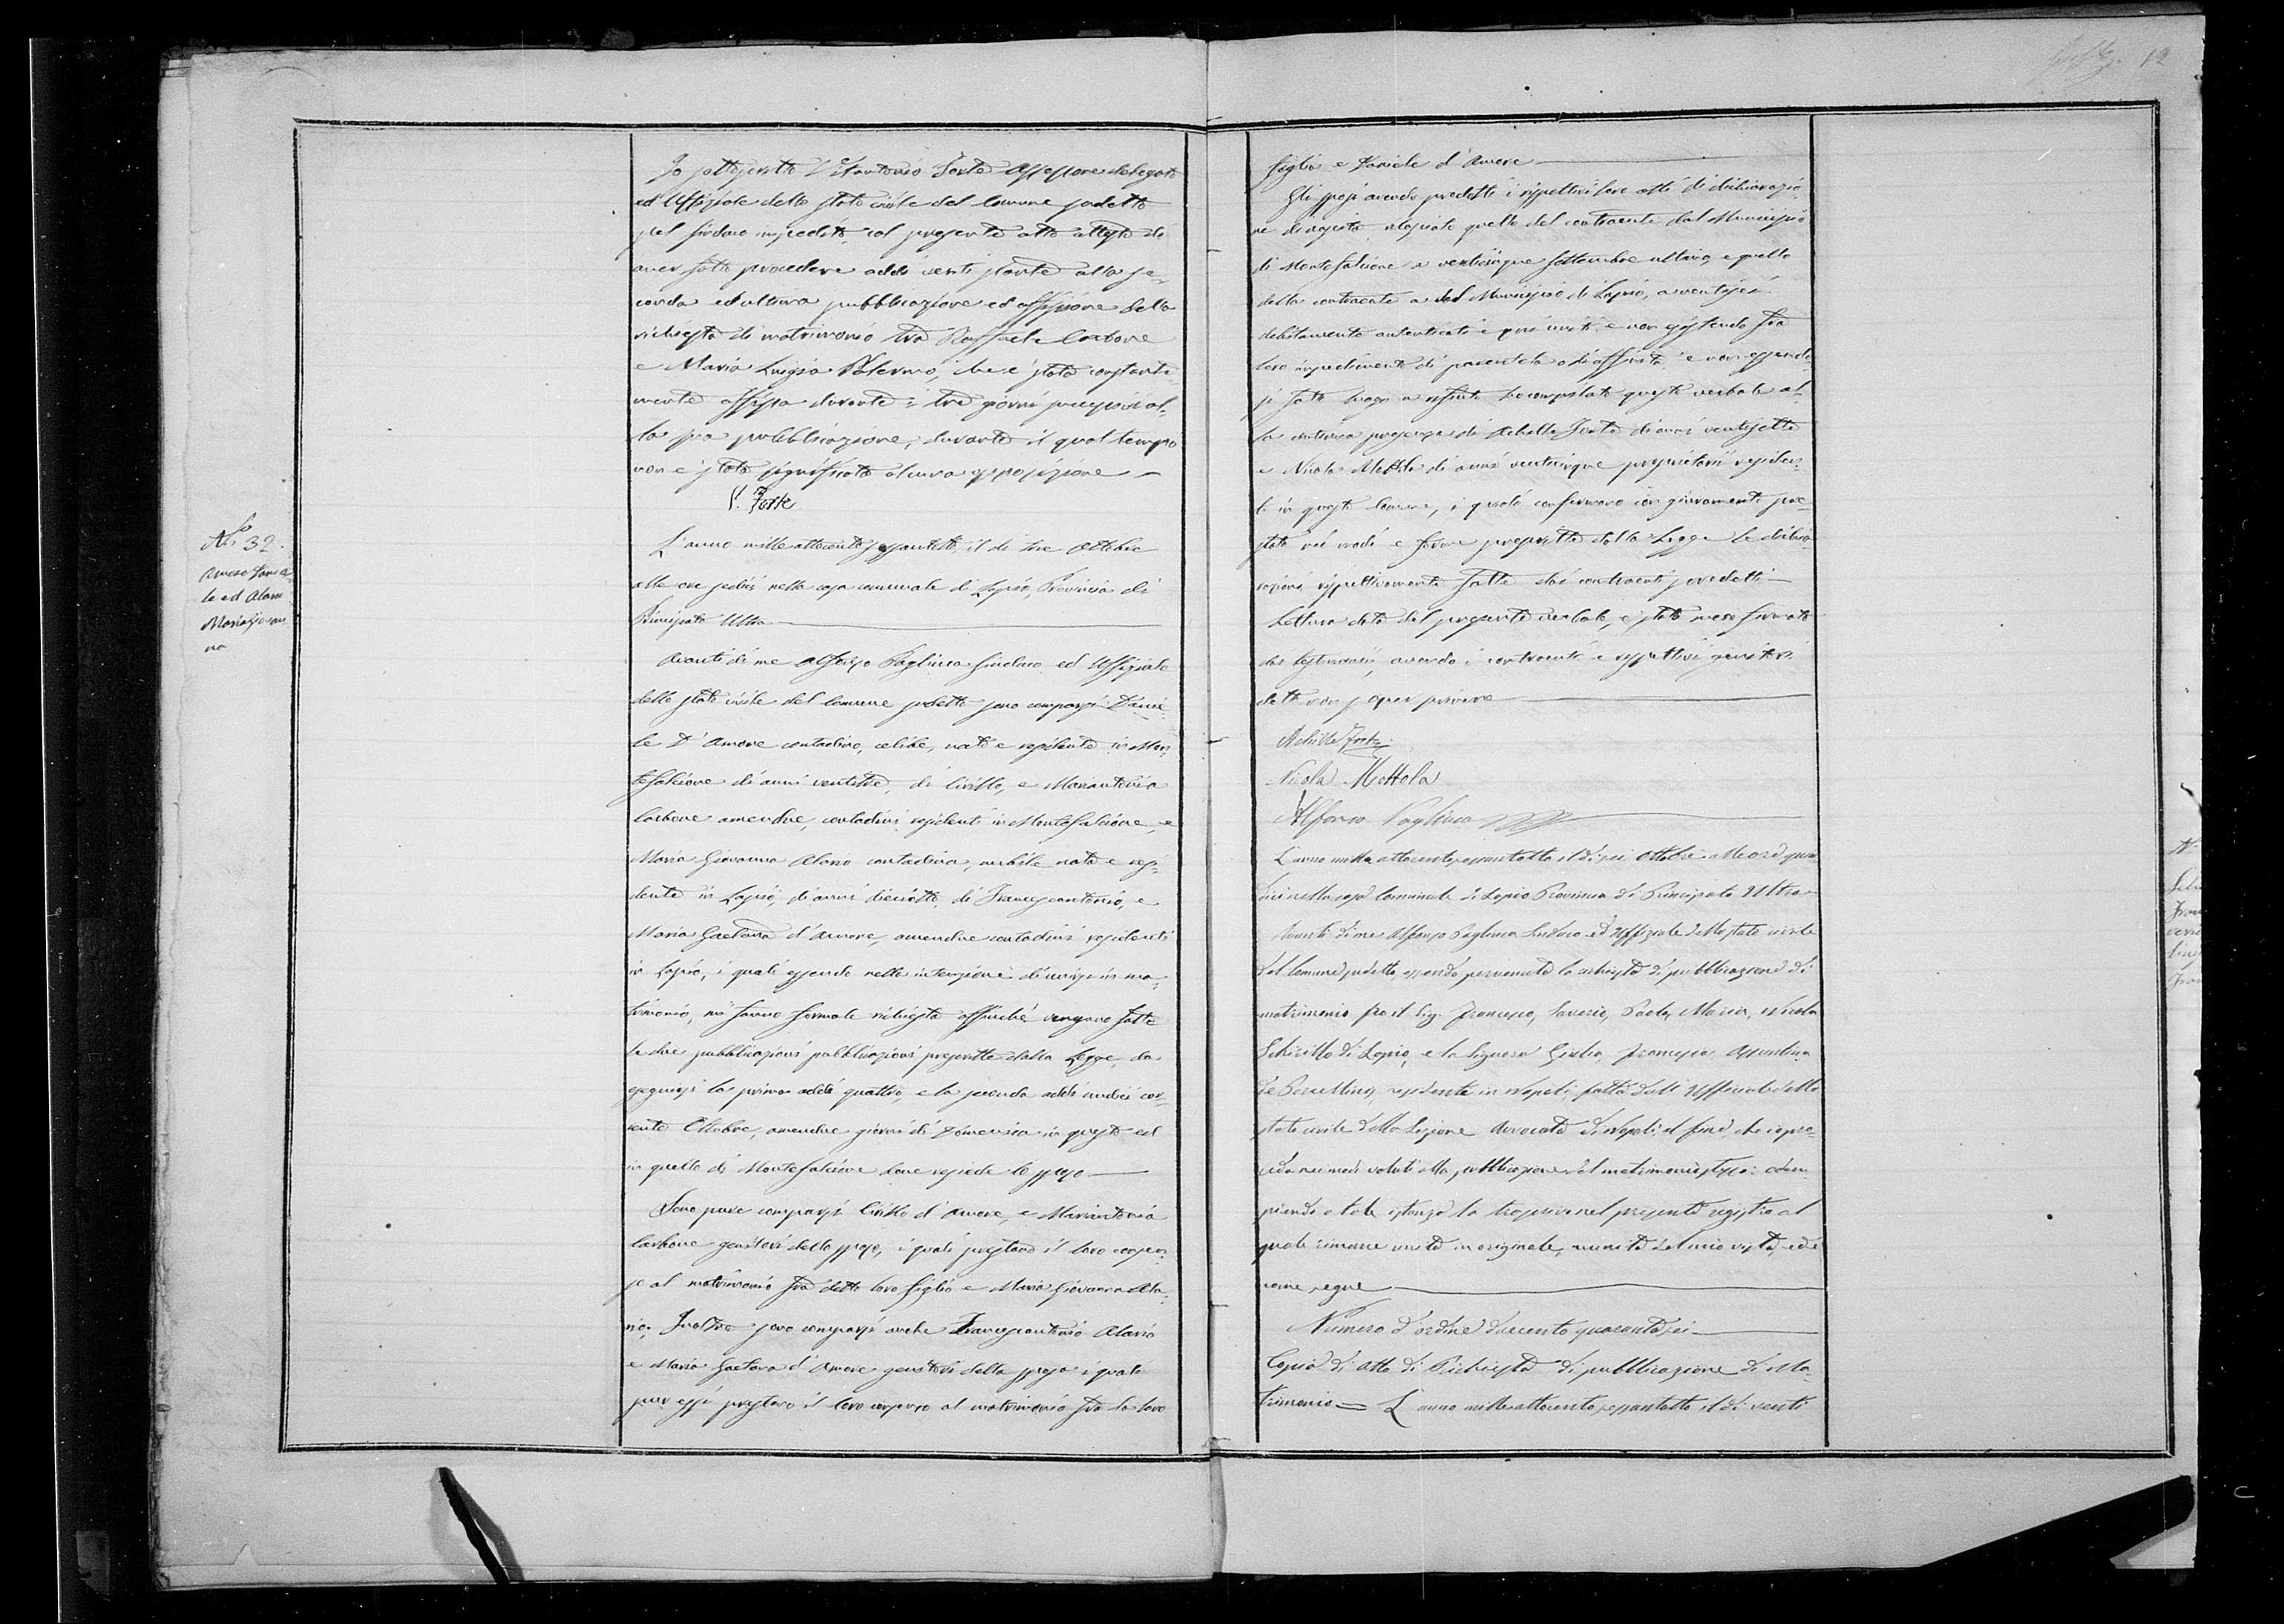 12
Io sottoscritto Vitantonio Forte Assessore delegato
ed Uffiziale dello stato civile del Comune sudetto
pel Sindaco impedito, col presente atto attesto di
aver fatto procedere addì venti stante alla se-
conda ed ultima pubblicazione ed affissione della
richiesta di matrimonio tra Raffaele Carbone
e Maria Luigia Palermo, che è stata constante-
mente affissa durante i tre giorni successivi al-
la sua pubblicazione, durante il qual tempo
non è stata significata alcuna opposizione —
V. Forte
No 32.
Amore Danie-
le ed Alario
Maria Giovan
na
L'anno mille ottocento sessantotto il dì tre Ottobre
alle ore sedici nella casa comunale di Lapio, Provincia di
Principato Ultra
Avanti di me Alfonso Pagliuca Sindaco ed Uffiziale
dello stato civile del Comune sudetto sono comparsi Danie-
le D'Amore contadino, celibe, nato e residente in Mon-
tefalcione di anni ventitre, di Cirillo, e Mariantonia
Carbone amendue, contadini residenti in Montefalcione, e
Maria Giovanna Alario contadina, nubile nata e resi-
dente in Lapio, di anni dieciotto, di Francescantonio, e
Maria Gaetana d'Amore, amendue contadini residenti
in Lapio, i quali essendo nella intenzione di unirsi in ma-
trimonio, mi fanno formale richiesta affinché vengano fatte
le due pubblicazioni pubblicazioni prescritte dalla Legge, da
eseguirsi la prima addì quattro, e la seconda addì undici cor-
rente Ottobre, amendue giorni di Domenica in questo ed
in quello di Montefalcione dove risiede lo sposo —
Sono pure comparsi Cirillo d'Amore, e Mariantonia
Carbone genitori dello sposo, i quali prestano il loro consen-
so al matrimonio fra detto loro figlio e Maria Giovanna Ala-
rio. Inoltre sono comparsi anche Francescantonio Alario
e Maria Gaetana d'Amore genitori della sposa i quali
pur essi prestano il loro consenso al matrimonio fra la loro
figlia e Daniele d'Amore —
Gli sposi avendo prodotti i rispettivi loro atti di dichiarazio-
ne di nascita rilasciato quello del contraente dal Municipio
di Montefalcione a venticinque Settembre ultimo, e quello
della contraente a dal Municipio di Lapio, a ventisei
debitamente autenticati e quì uniti e non esistendo fra
loro impedimento di parentela o di affinità e non essendo-
si fatto luogo a rifiuto ho compilato questo verbale al-
la continua presenza di Achille Forte di anni ventisette
e Nicola Mottola di anni venticinque proprietarii residen-
ti in questo Comune, i quali confermano con giuramento pre-
stato nei modi e forme prescritte dalla Legge le dichia-
razioni rispettivamente fatte dai contraenti sovradetti —
Lettura data del presente verbale, è stato meco firmato
dai testimoni, avendo i contraenti e rispettivi genitori
detto non saper scrivere
Achille Forte
Nicola Mottola
Alfonso Pagliuca
L'anno mille ottocento sessantotto il dì sei Ottobre alle ore quin
dici nella casa Comunale di Lapio Provincia di Principato Ultra
Avanti di me Alfonso Pagliuca Sindaco ed Uffiziale dello stato civile
del Comune sudetto, essendo pervenuta la richiesta di pubblicazione di
matrimonio fra il Sig. Francesco, Saverio, Paolo, Maria, Nicola
Schirillo di Lapio, e la Signora Giulia, Francesca, Assuntina
residente in Napoli, fatta dall' Uffiziale dello
stato civile della Sezione Avvocata di Napoli al fine che si pro-
ceda nei modi voluti alla pubblicazione del matrimonio stesso: adem
piendo a tale istanza la trascrivo nel presente registro al
quale rimane unita in originale, munita del mio visto, ed è
come segue
Numero d'ordine duecento quarantasei
Copia di Atto di Richiesta di pubblicazione di Ma-
trimonio = L'anno mille ottocento sessantotto il dì venti